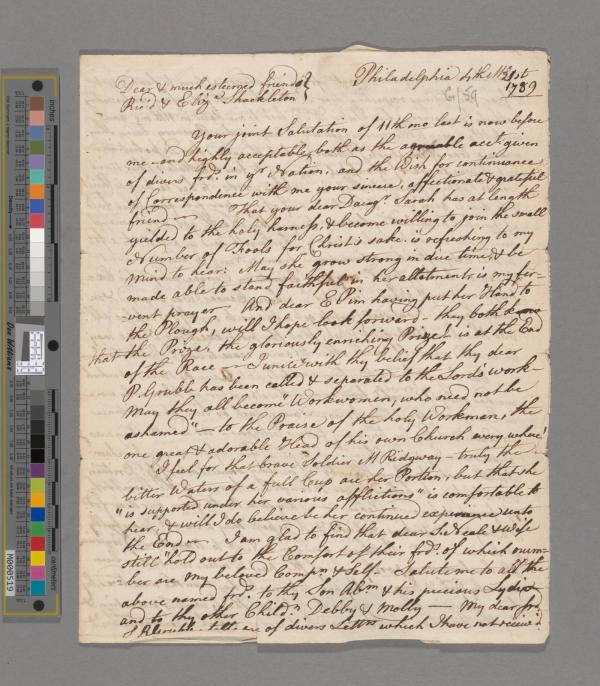 Philadelphia 4th Mo 21st
1789
Dear & much esteemed friends
Rich.d & Eliz.a Shackleton
G/59
Your joint Salutation of 11th mo last is now before
me—and highly acceptable, both as the agreeable acct. given
of divers frds. in yr. Nation, and the Wish for continuance
of Correspondence with me your sincere, affectionate & grateful
friend — That your dear Daugr. Sarah has at length
yielded to the holy harness, & become willing to join the small
Number of Fools for Christ's sake. is refreshing to my
mind to hear: May she grow strong in due time, & be
made able to stand faithful in her allotments, is my fer-
-vent prayer — And dear E Pim having put her Hand to
the Plough, will I hope look forward — they both know
that the Prize, the gloriously enriching Prize! is at the End
of the Race — I unite with thy belief that thy dear
P. Grubb has been called & separated to the Lord's work—
May they all become "Workwomen, who need not be
ashamed" — to the Praise of the holy Workman, the
one great & adorable Head of his own Church every where!
I feel for that brave Soldier M Ridgway — truly the
bitter Waters of a full Cup are her Portion, but that she
"is supported under her various afflictions" is comfortable to
hear, & will I do believe be her continued experience unto
the End — I am glad to find that dear Neale & Wife
still "hold out to the Comfort of their frds." of which num-
ber are my beloved Compn. & Self. Salute me to all the
above named frds. to thy Son Abm & his precious Lydia
and to thy other Childn. Debby & Molly — My dear frd.
of divers Lettrs which I have not receiv'd
Don Williams
inches
centimetres
M000519